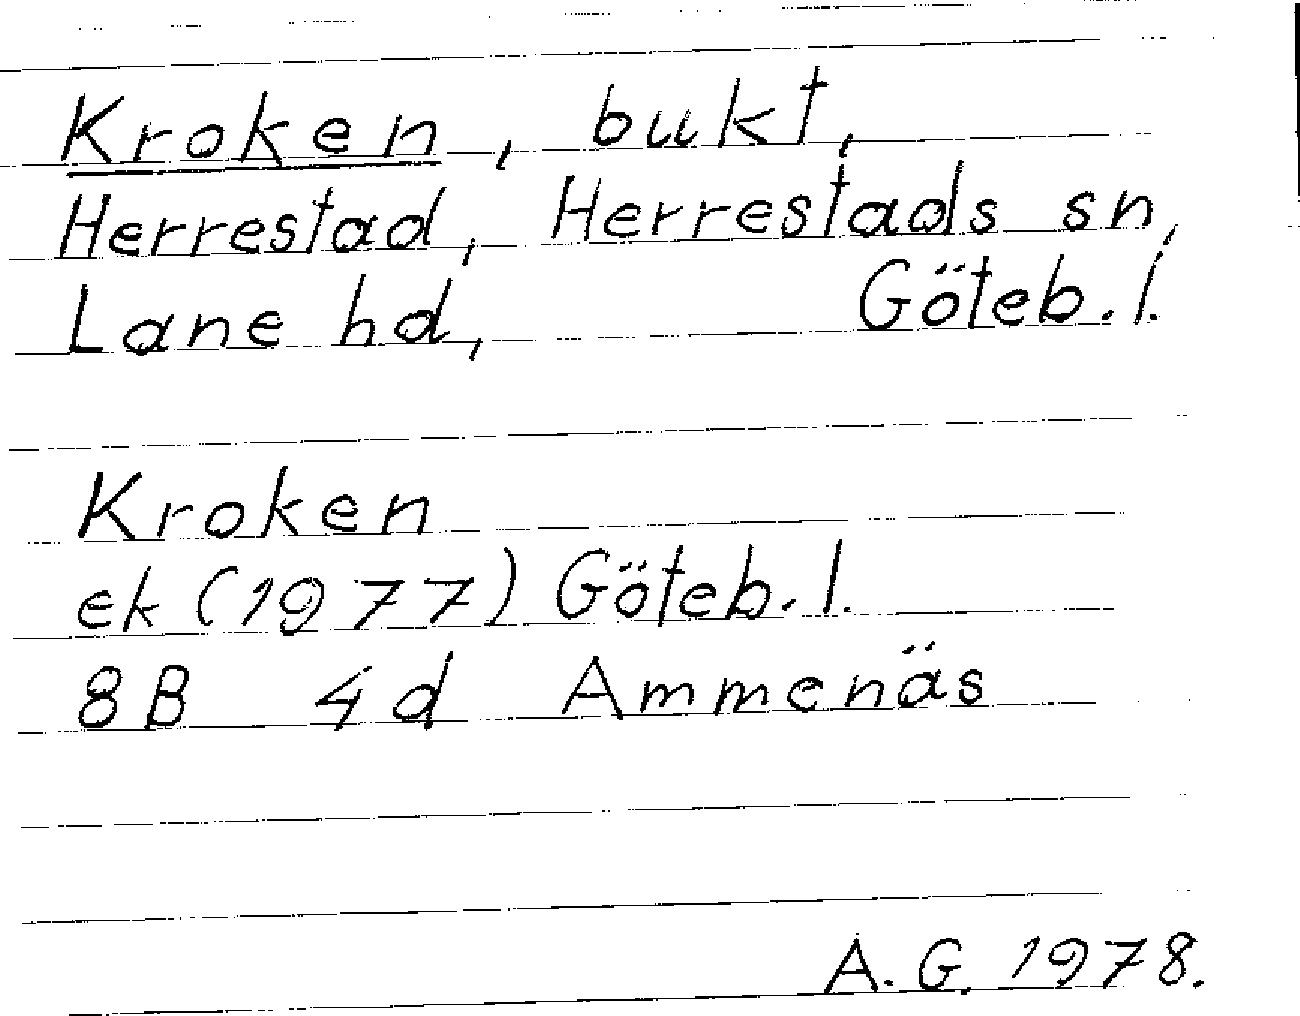 Kroken, bukt,
Herrestad, Herrestads sn,
Lane hd, Göteb. l.
Kroken
ek (1977) Göteb. l.
8B 4d Ammenäs
A. G. 1978.